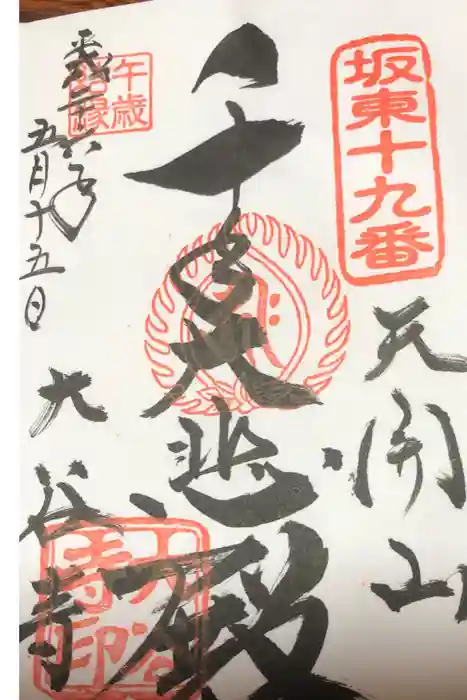 坂東十九番
天開山
千手大悲殿
午歳結縁
平成二十六年
五月十五日
大谷寺
大谷寺印